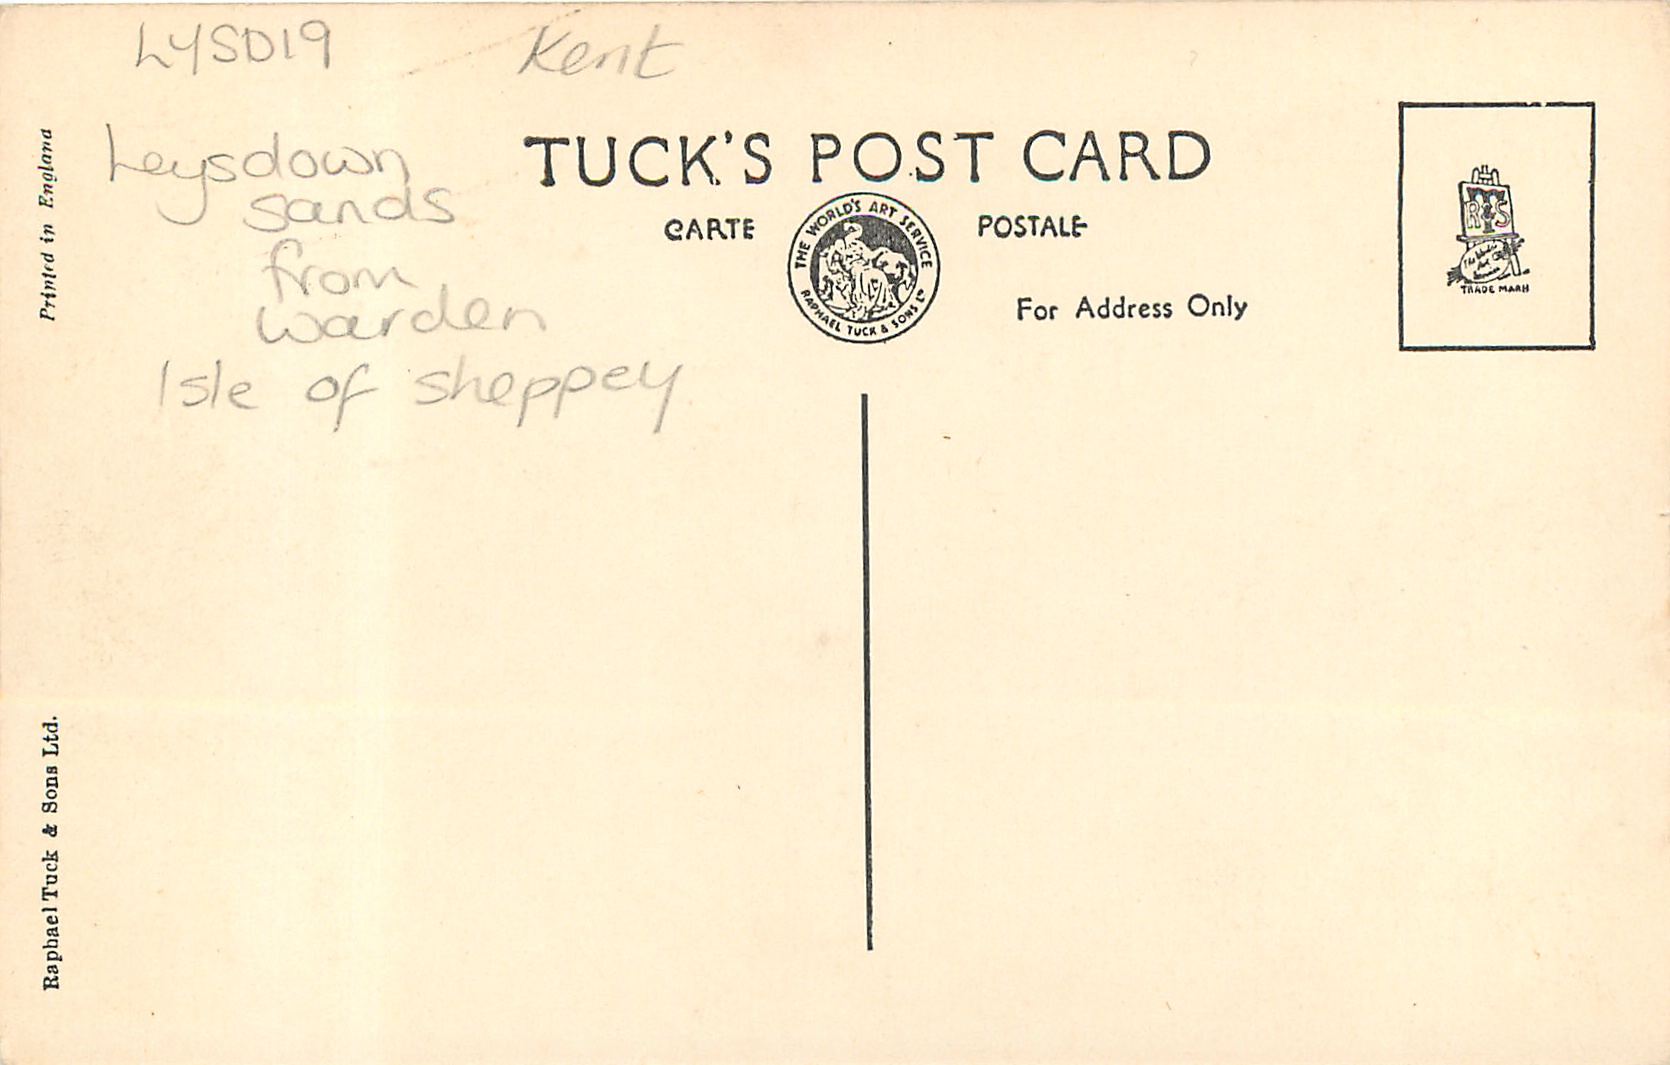 LYSD19 Kent
Leysdown
sands
from
warden
Isle of Sheppey
Printed in England
Raphael Tuck & Sons Ltd.
TUCK'S POST CARD
CARTE POSTALE
THE WORLD'S ART SERVICE
RAPHAEL TUCK & SONS LTD
For Address Only
R T & S
The World's
Art
Service
TRADE MARK